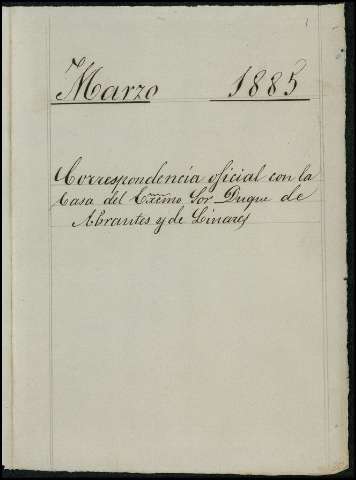 1
Marzo 1885
Correspondencia oficial con la
Casa del Excmo Sor Duque de
Abrantes y de Linares